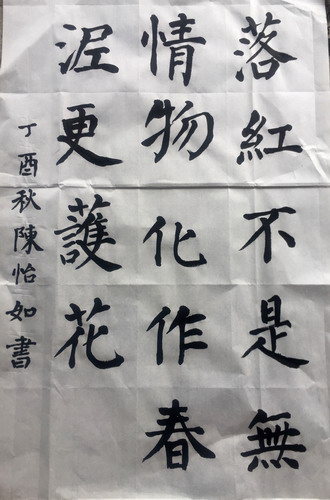 落紅不是無
情物化作春
泥更護花
丁酉秋陳怡如書